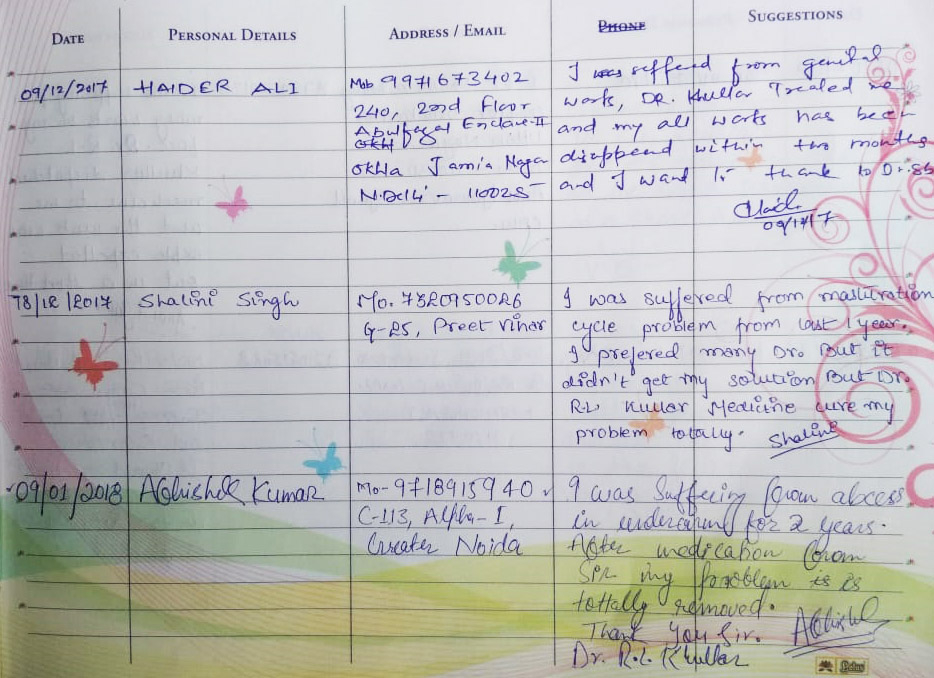 DATE
PERSONAL DETAILS
ADDRESS / EMAIL
PHONE
SUGGESTIONS
09/12/2017
HAIDER ALI
Mob 9971673402
240, 2nd Floor
Abulfazal Enclave-II
Okhla Jamia Naga
N.Delhi - 110025
I was seffered from genital
worts, DR. Khullar Treated me
and my all worts has been
disappend within two months
and I want to thank to Dr. Sb
09/12/17
18/12/2017
Shalini Singh
Mo. 7320950026
G-25, Preet Vihar
I was suffered from mastitration
cycle problem from last 1 year.
I prefered many Dr. But it
didn't get my solution But Dr.
R.L Kullar Medicine cure my
problem totally.
Shalini
09/01/2018
Abhishek Kumar
Mo- 9718915940
C-113, Alpha-I,
Greater Noida
I was Suffering from abcess
in underarm for 2 years.
After medication from
my problem is
tottally removed.
Thank You Sir.
Abhishek
Dr. R.L. Khullar